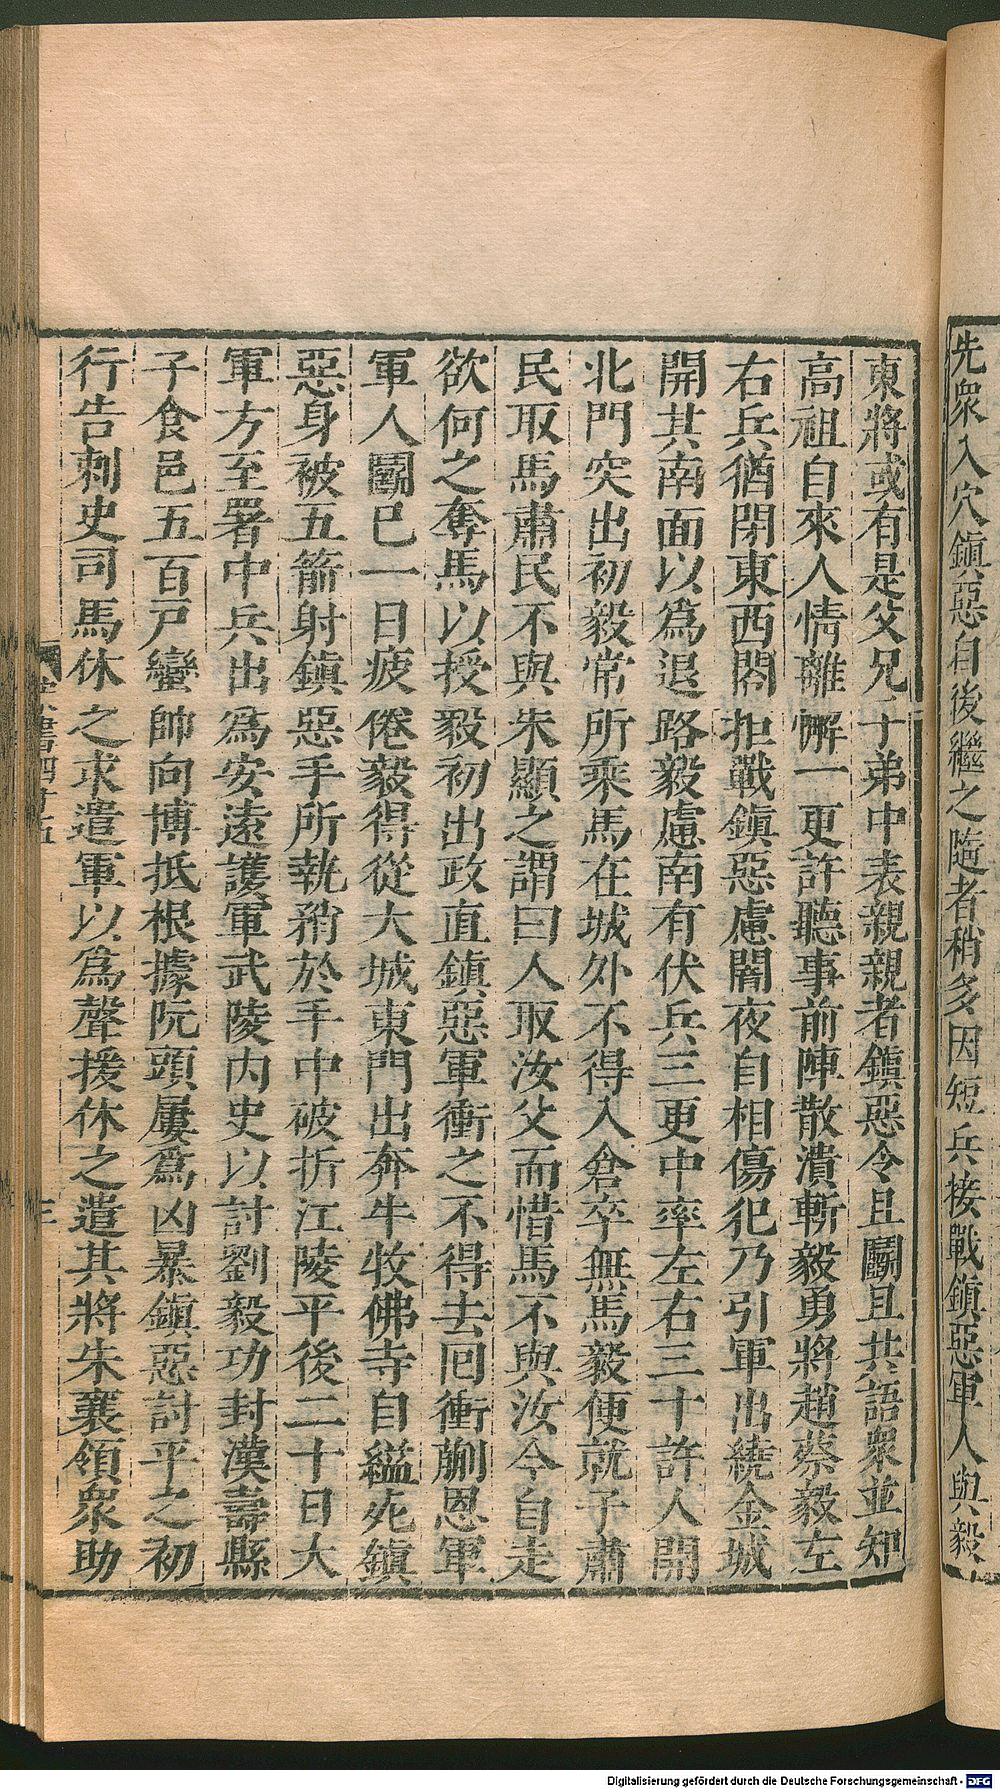 先衆入穴鎭惡自後繼之隨者稍多因短兵接戰鎭惡軍人與毅
東將或有是父兄子弟中表親親者鎭惡令且鬭且共語衆並知
高祖自來人情離懈一更許聽事前陣散潰斬毅勇將趙蔡毅左
右兵猶閉東西閤拒戰鎭惡慮闇夜自相傷犯乃引軍出繞金城
開其南面以爲退路毅慮南有伏兵三更中率左右三十許人開
北門突出初毅常所乘馬在城外不得入倉卒無馬毅便就子肅
民取馬肅民不與朱顯之謂曰人取汝父而惜馬不與汝今自走
欲何之奪馬以授毅初出政直鎭惡軍衝之不得去囘衝蒯恩軍
軍人鬭已一日疲倦毅得從大城東門出奔牛牧佛寺自縊死鎭
惡身被五箭射鎭惡手所執矟於手中破折江陵平後二十日大
軍方至署中兵出爲安遠護軍武陵内史以討劉毅功封漢壽縣
子食邑五百戸蠻帥向博抵根據阮頭屢爲凶暴鎭惡討平之初
行告刺史司馬休之求遣軍以爲聲援休之遣其將朱襄領衆助
宋書四十五
三
Digitalisierung gefördert durch die Deutsche Forschungsgemeinschaft - DFG